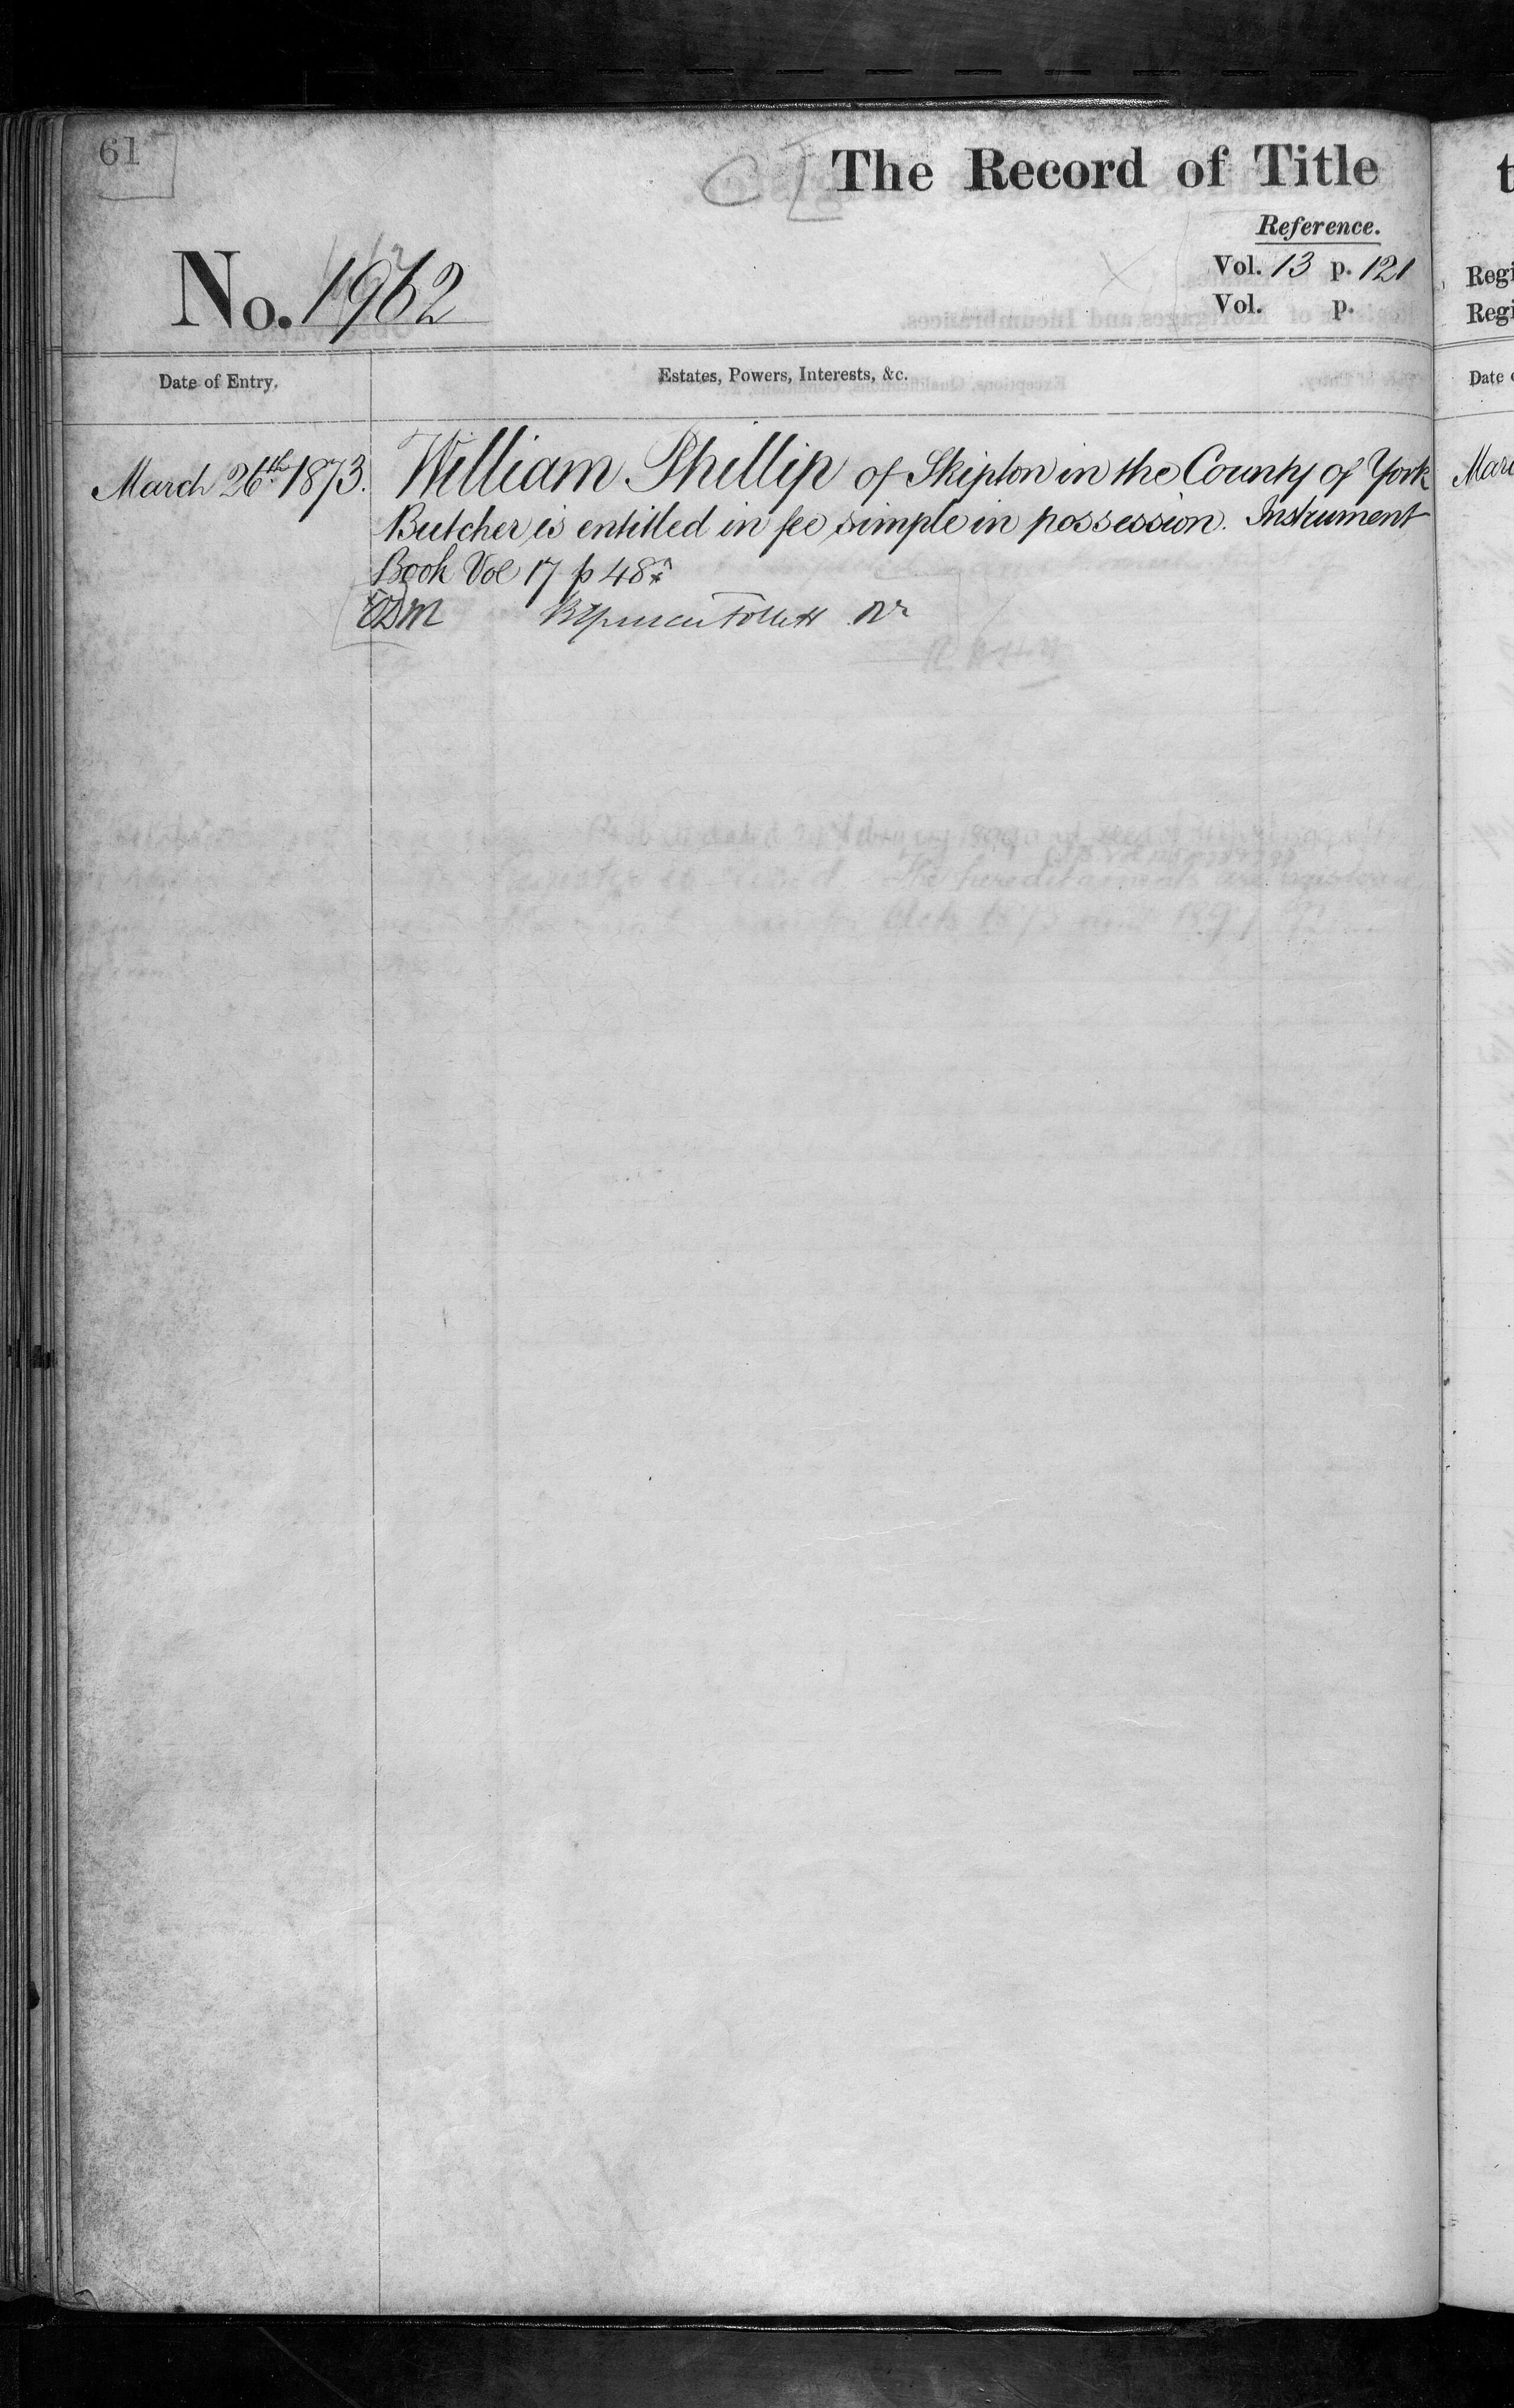 61
The Record of Title
Reference.
Vol. 13 p. 121
Vol. p.
No. 1962
Date of Entry.
Estates, Powers, Interests, &c.
March 26th 1873.
William Phillip of Skipton in the County of York
Butcher is entitled in fee simple in possession. Instrument
Book Vol 17 p 48
Follett
t
Regi
Regi
Date
Mar